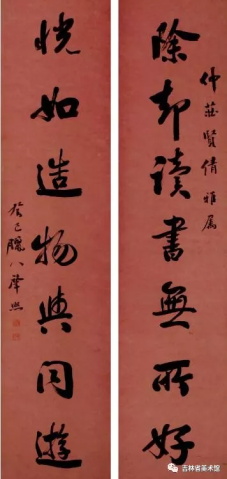 仲莊賢倩雅属
除却讀書無所好
恍如造物與同遊
癸巳臘八肇熙
吉林省美术馆